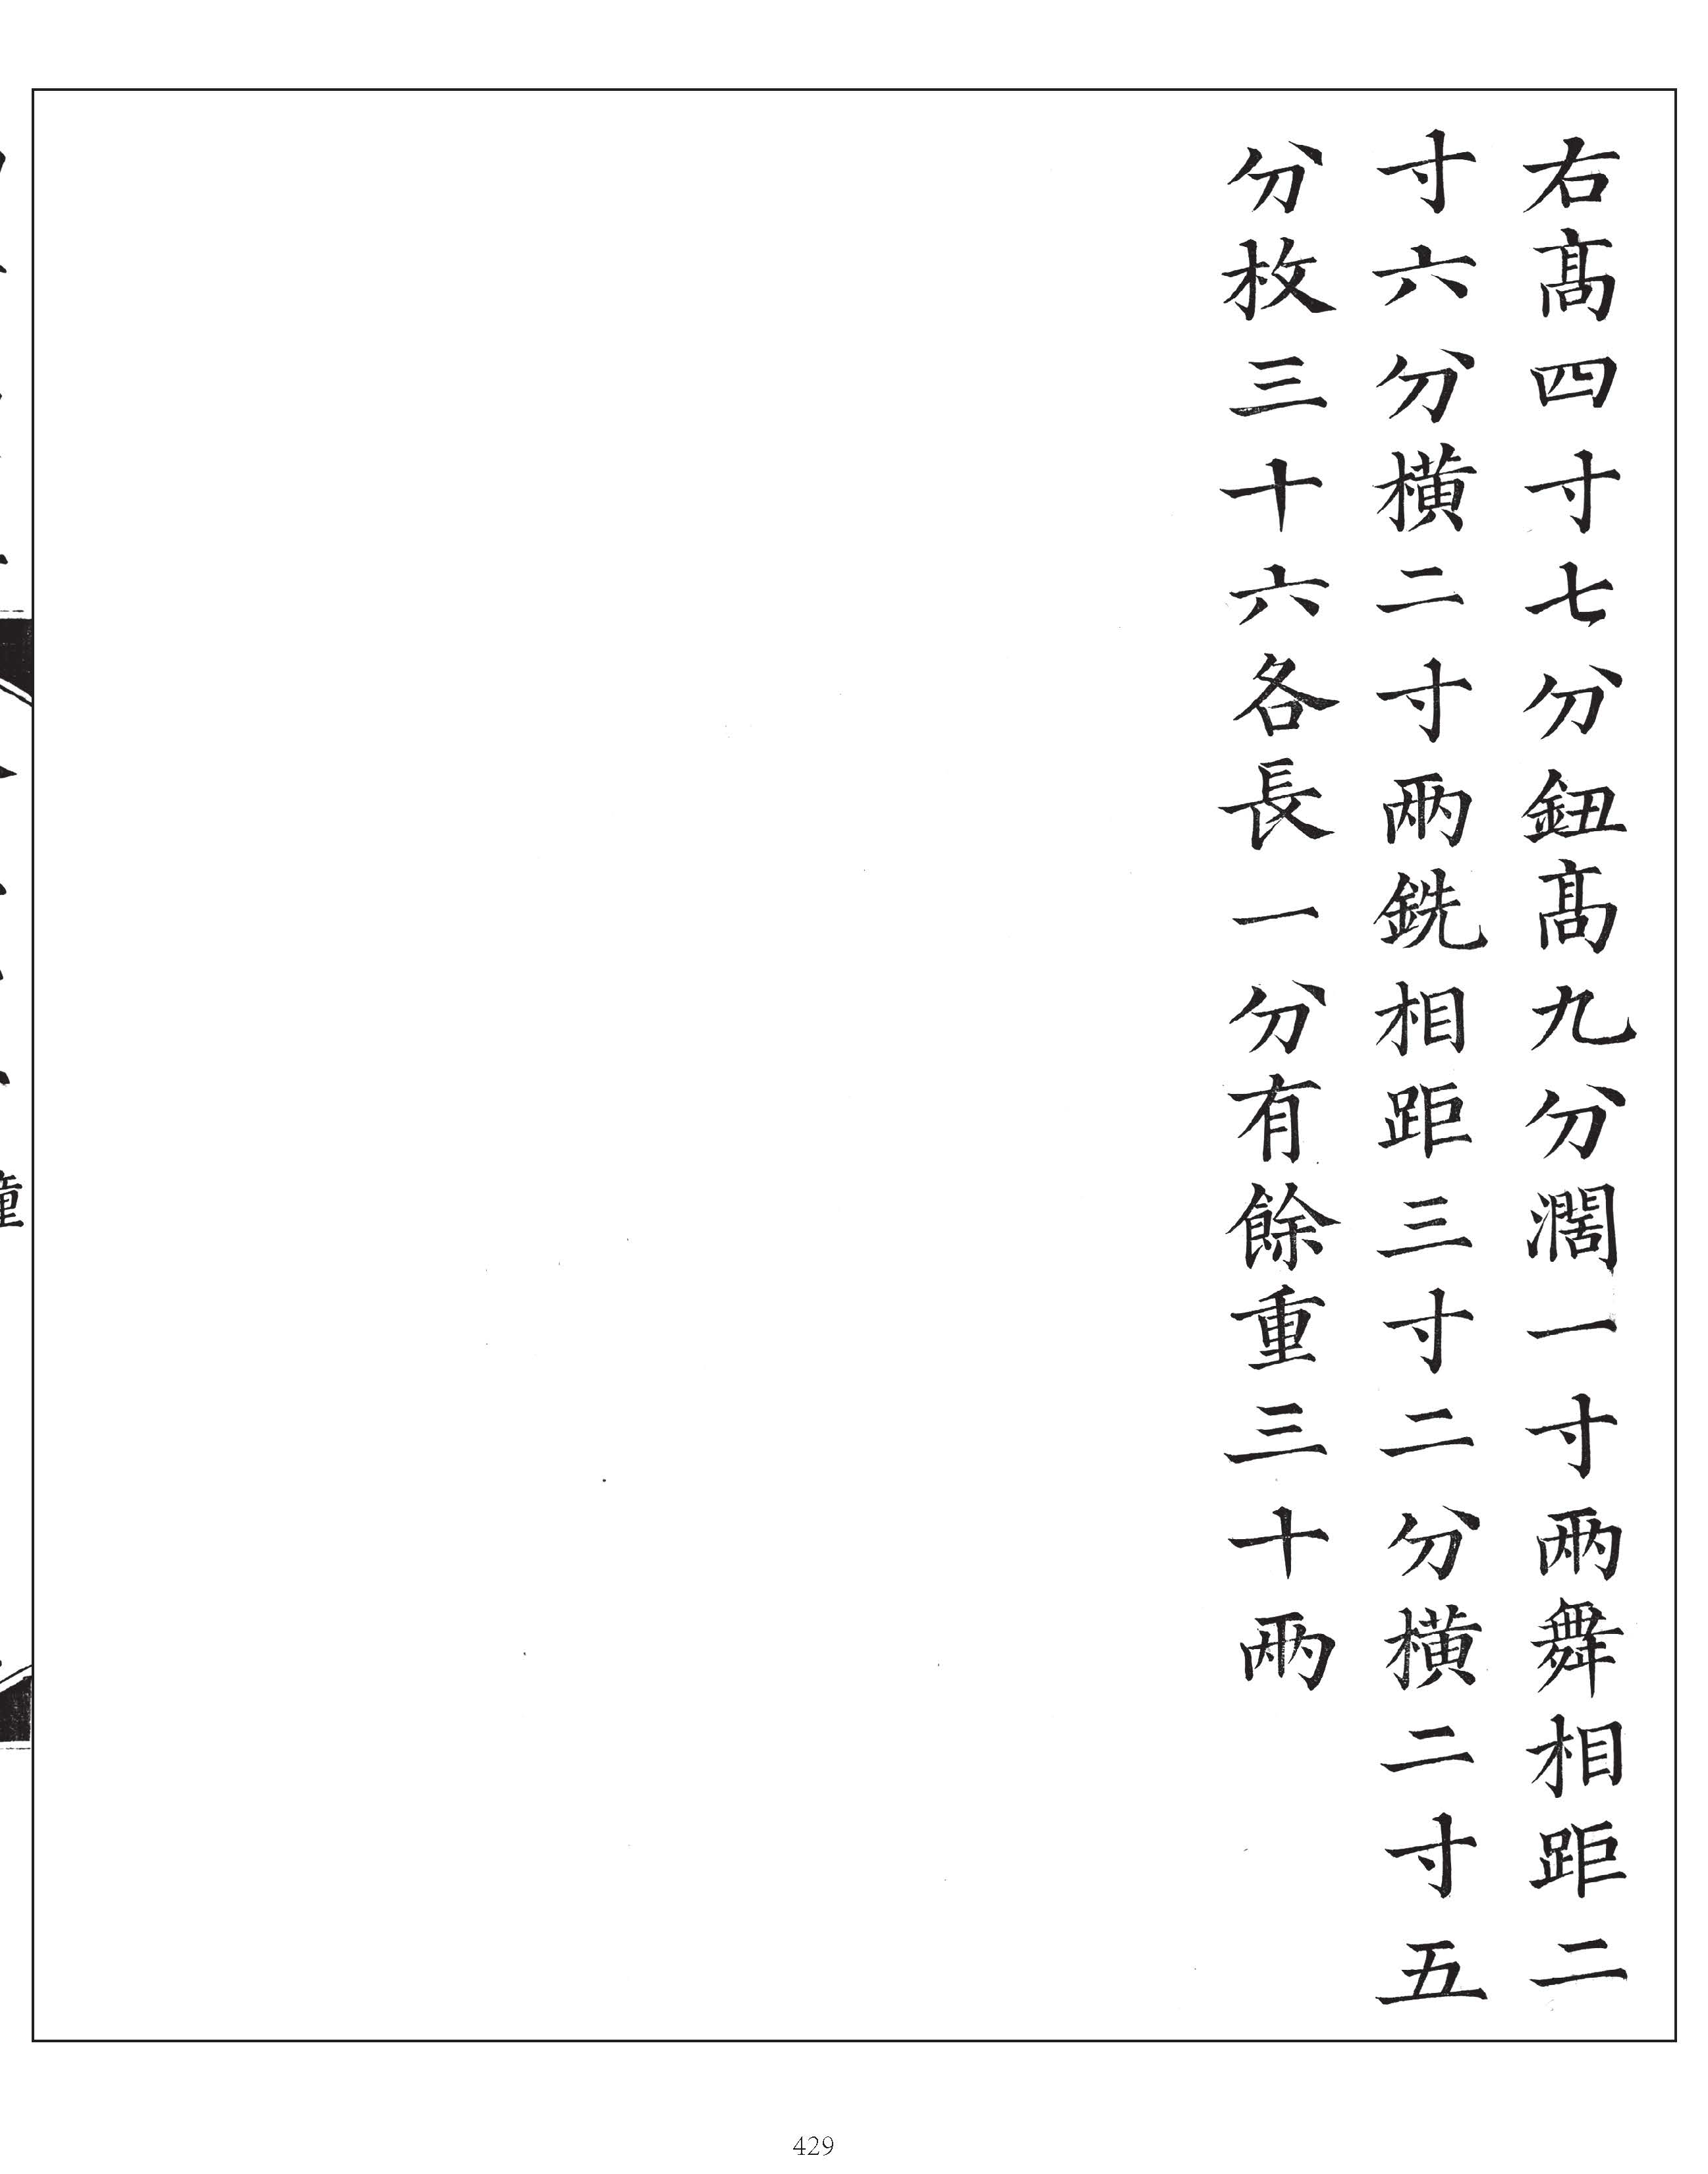 右髙四寸七分鈕髙九分濶一寸兩舞相距二
寸六分橫二寸兩銑相距三寸二分橫二寸五
分枚三十六各長一分有餘重三十兩
429